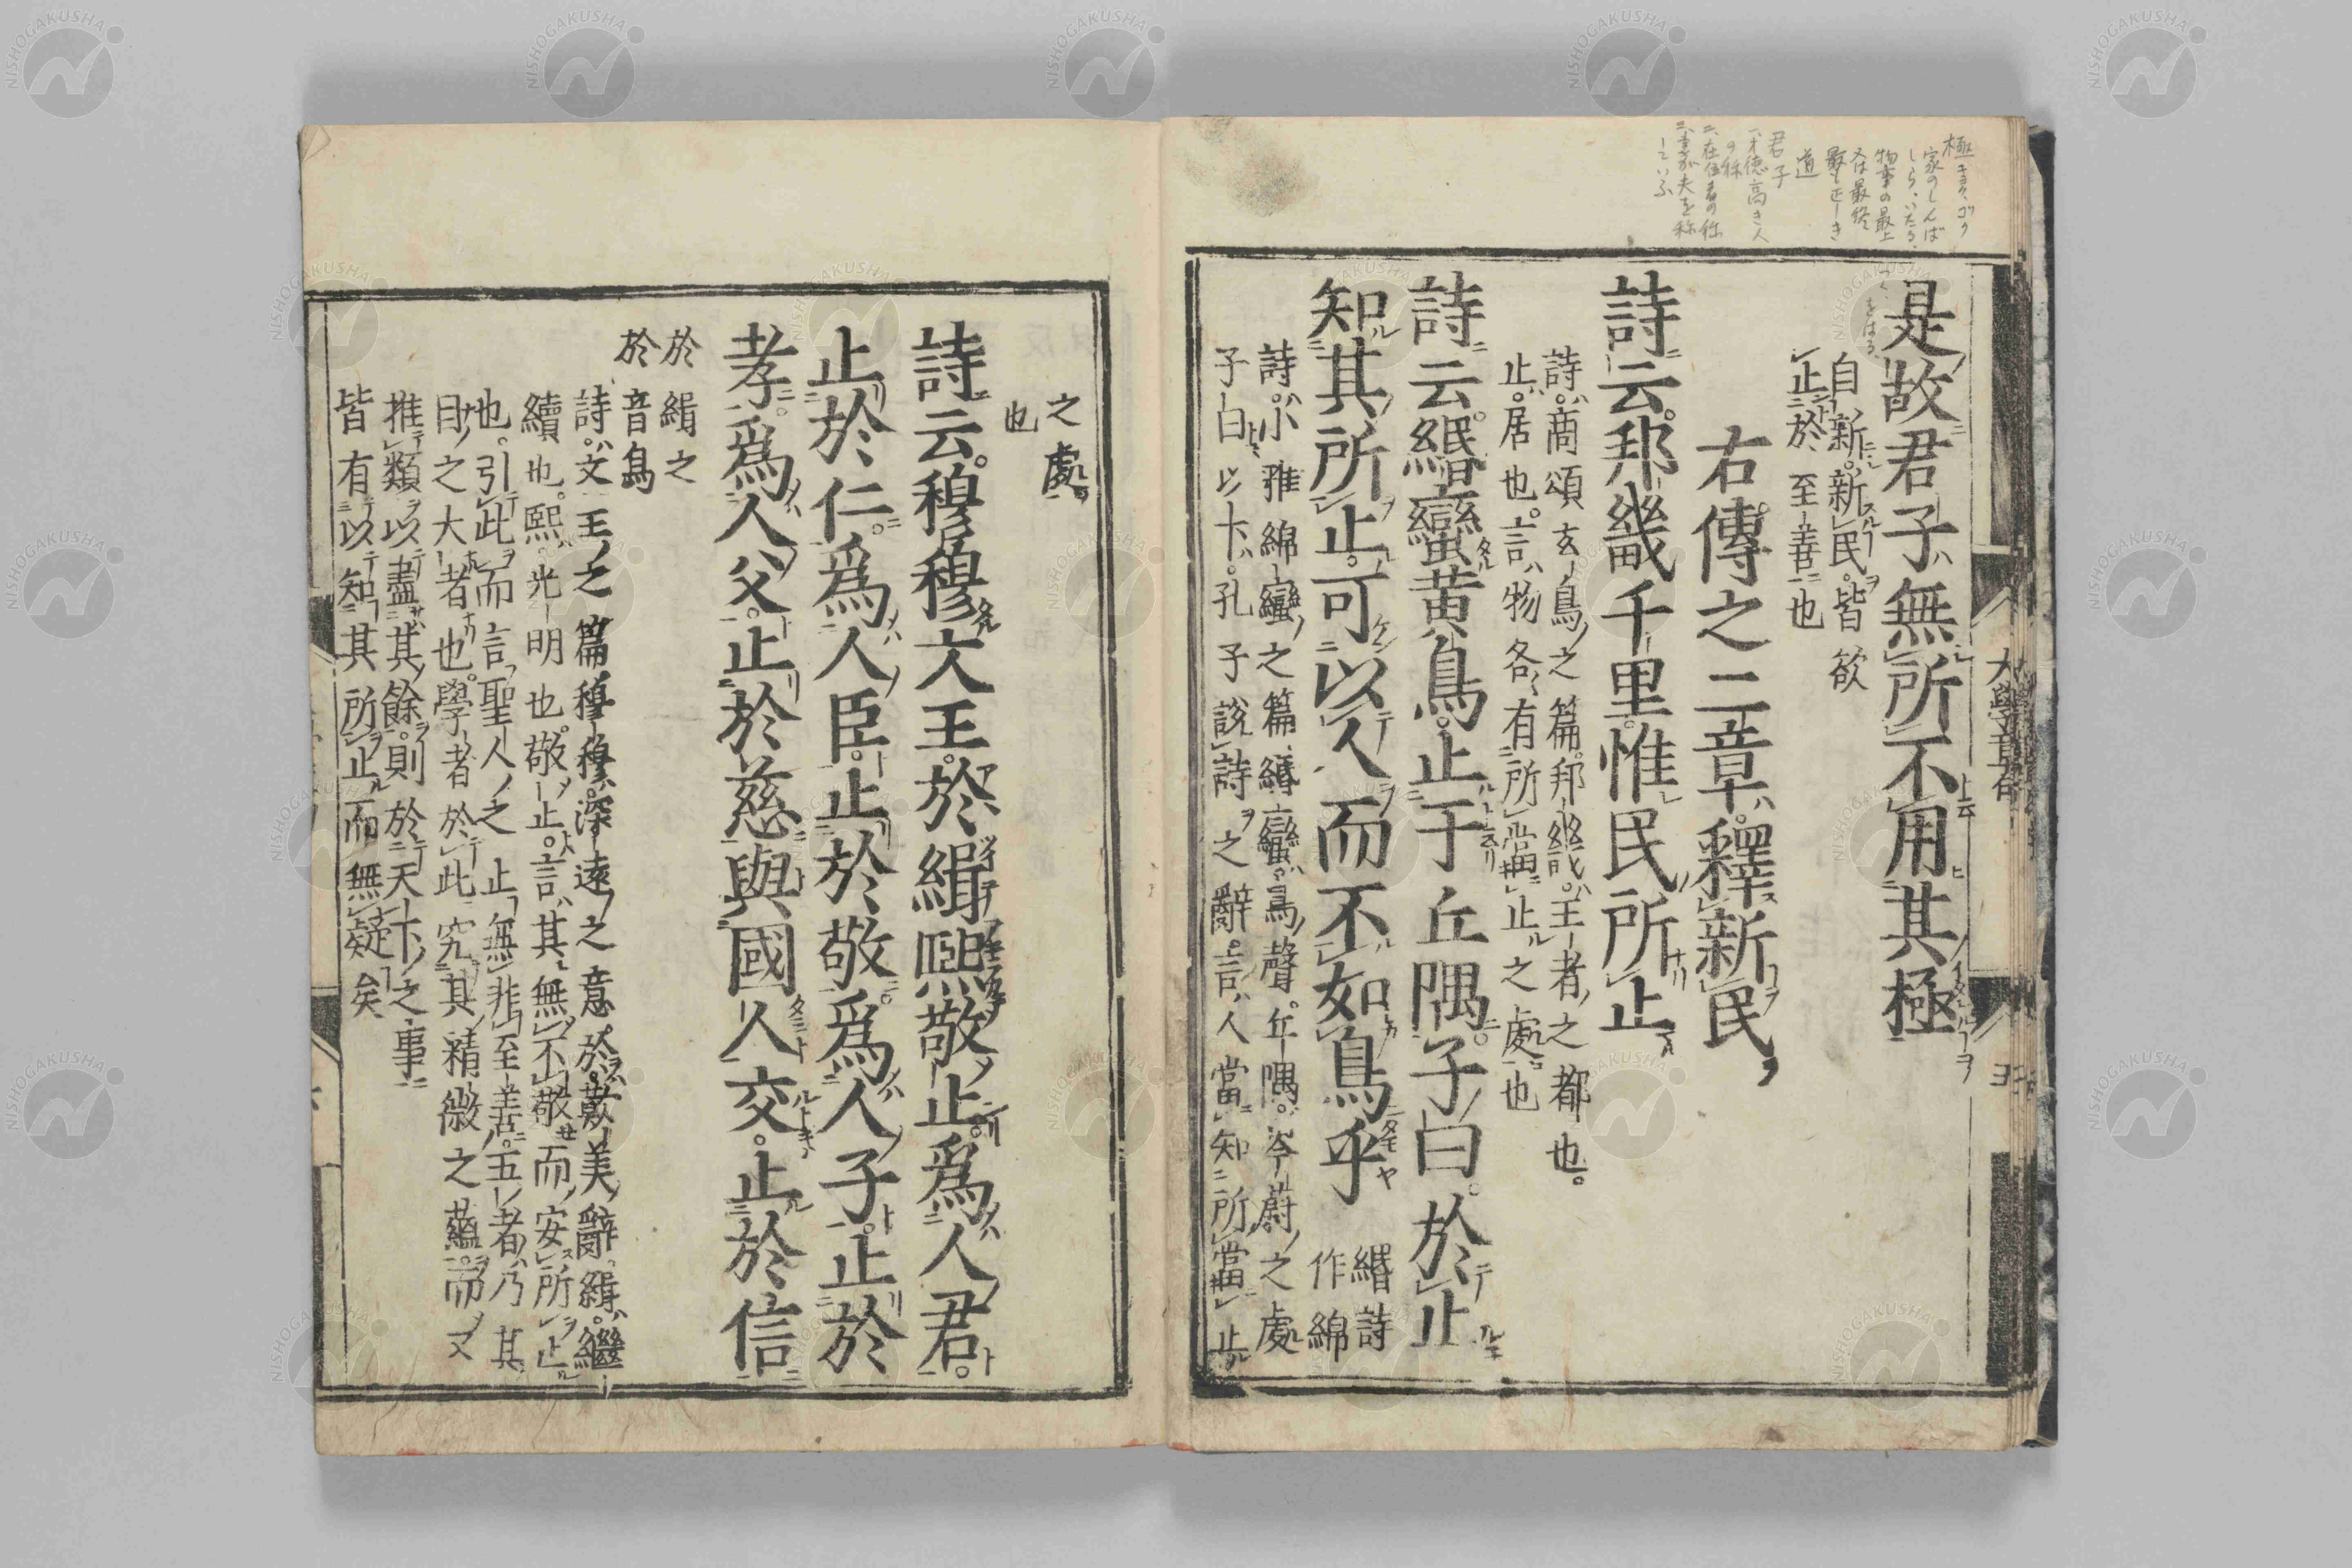 極 キヨク、ゴク
家のしんば
しら、いたる、
物事の最上
又は最終
最も正しき
道
君子
一、才徳高き人
の称
二、在位者の称
三、妻が夫を称
していふ
是故君子無所不用其極
自新新民皆欲
止於至善也
右傳之二章釋新民
詩云邦畿千里惟民所止
詩商頌玄鳥之篇邦畿王者之都也
止居也言物各有所當止之處也
詩云緡蠻黃鳥止于丘隅子曰於止
知其所止可以人而不如鳥乎
緡詩
作綿
詩小雅綿蠻之篇緡蠻鳥聲丘隅岑蔚之處
子曰以下孔子說詩之辭言人當知所當止
大學章句
之處
也
詩云穆穆文王於緝熙敬止爲人君
止於仁爲人臣止於敬爲人子止於
孝爲人父止於慈與國人交止於信
於緝之
於音烏
詩文王之篇穆穆深遠之意於歎美辭緝繼
續也熙光明也敬止言其無不敬而安所止
也引此而言聖人之止無非至善五者乃其
目之大者也學者於此究其精微之蘊而又
推類以盡其餘則於天下之事
皆有以知其所止而無疑矣
NISHOGAKUSHA